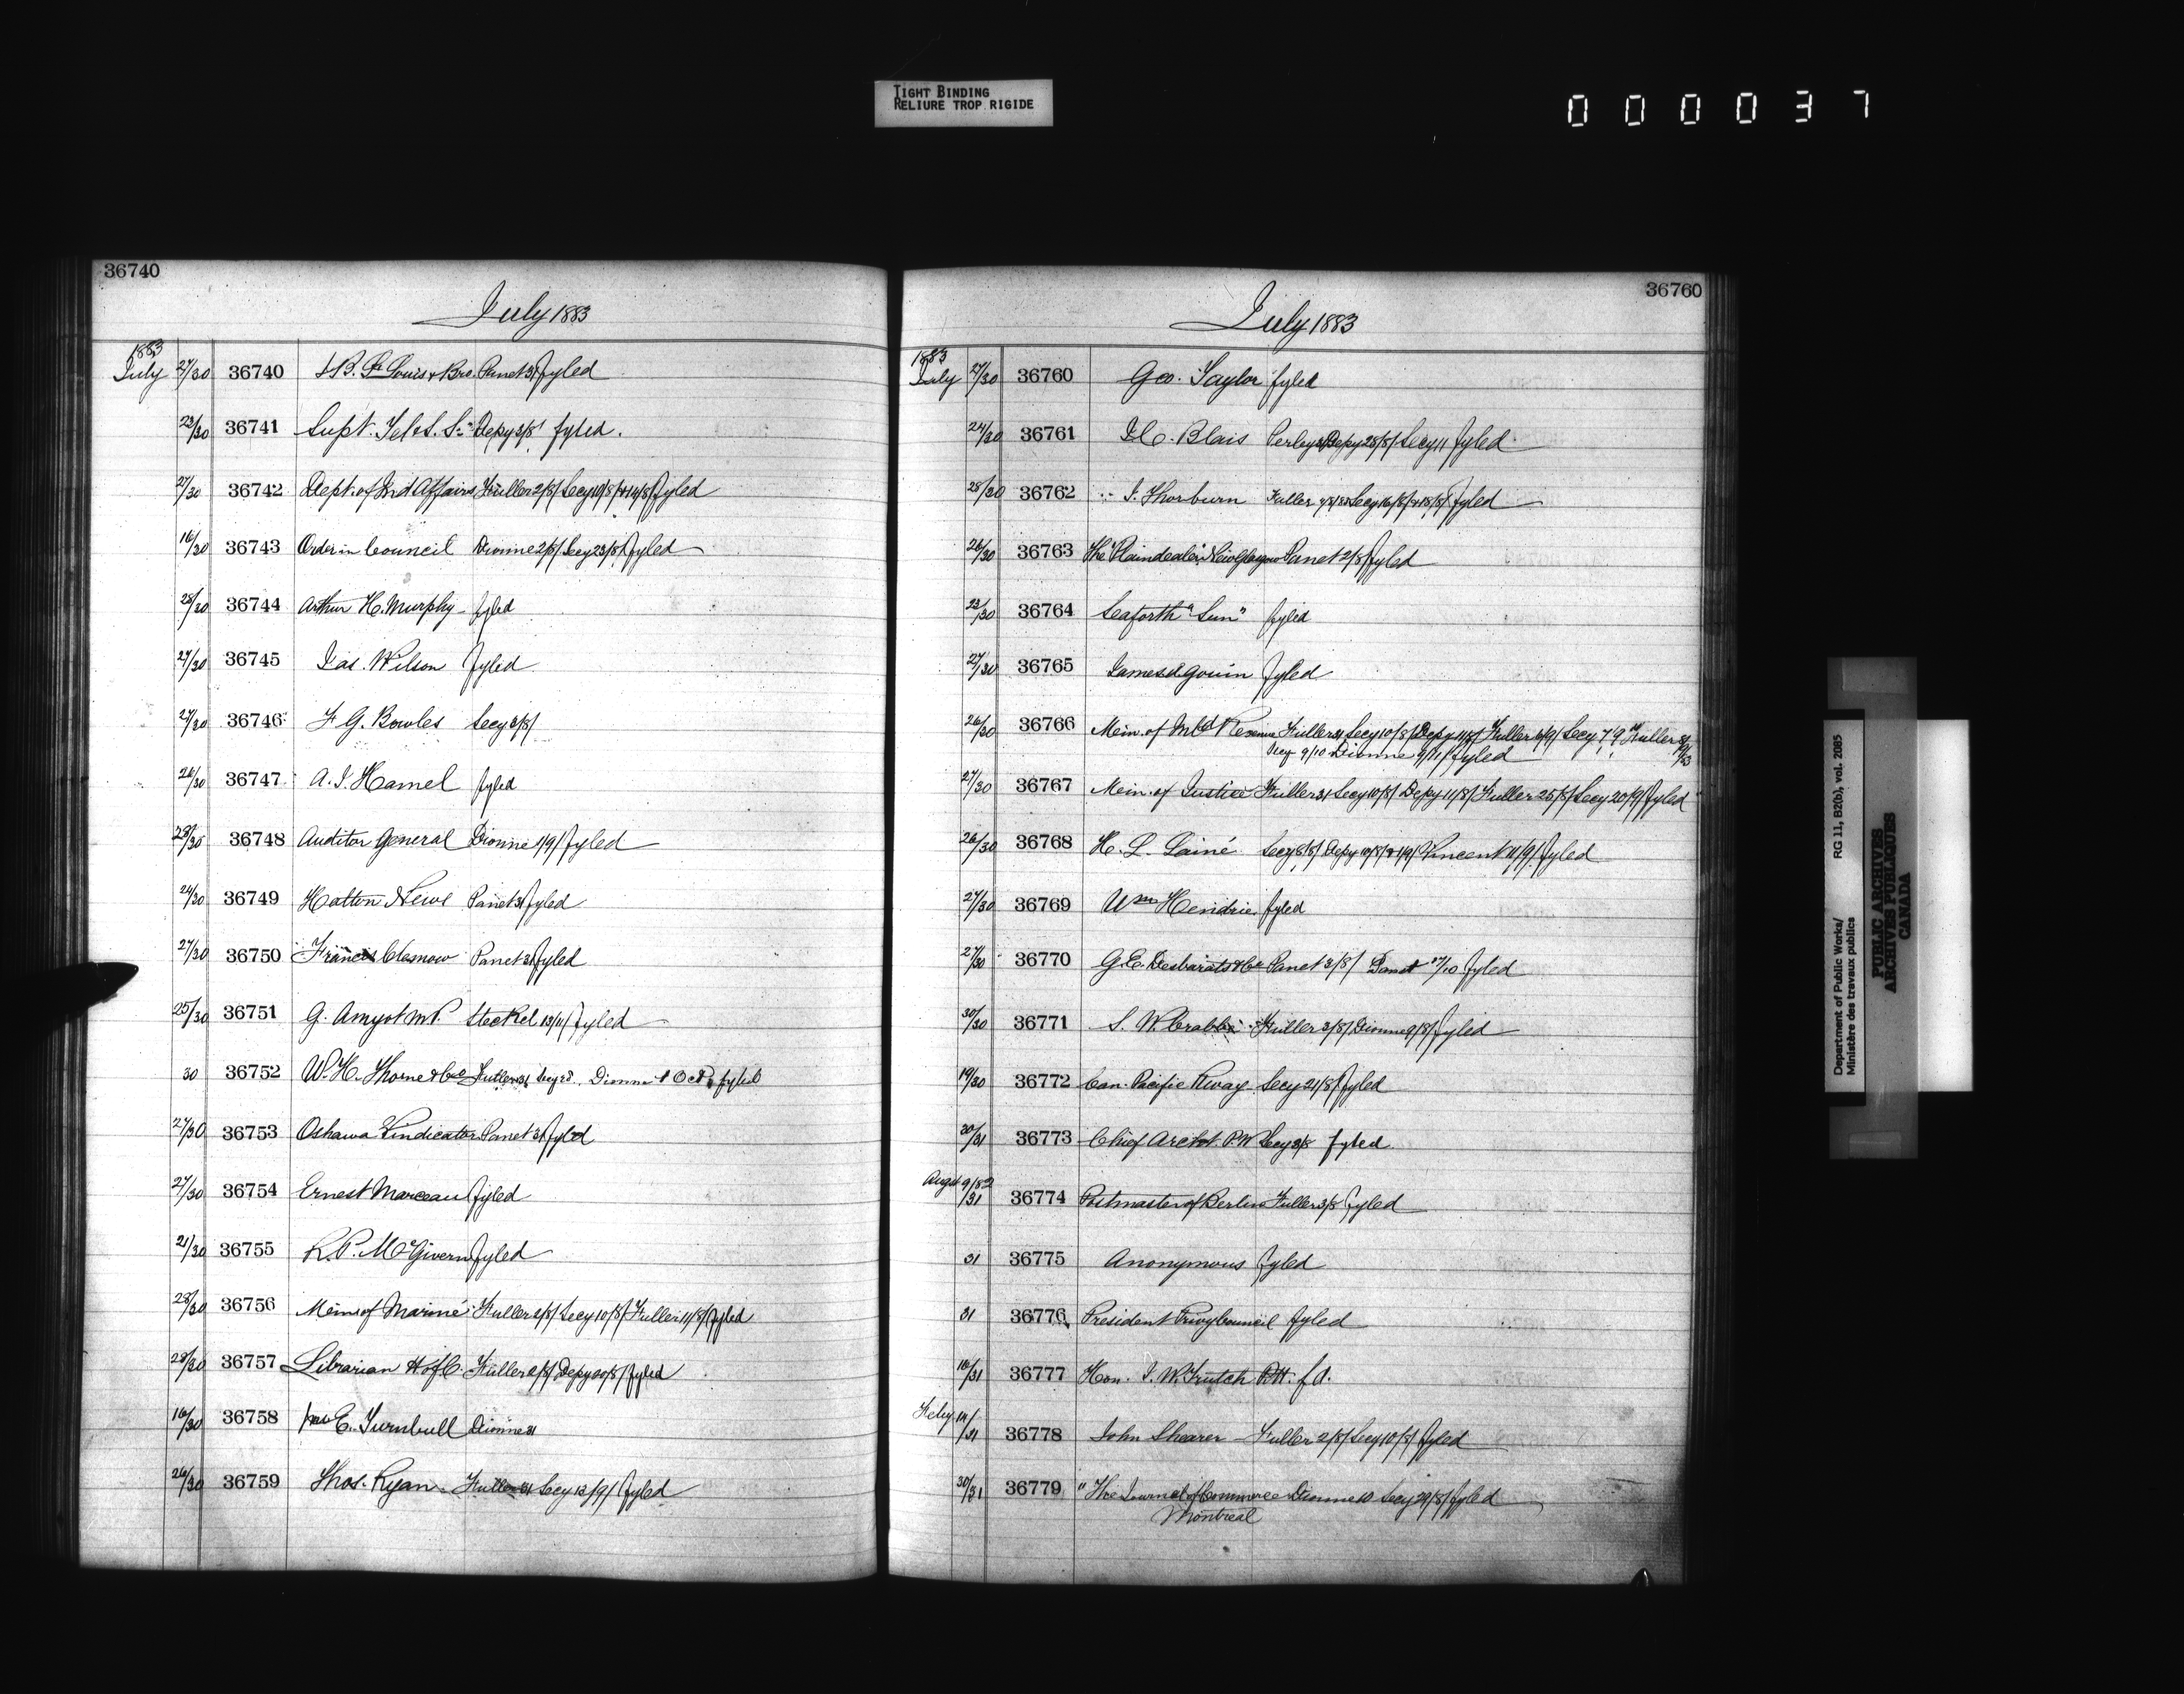 TIGHT BINDING
RELIURE TROP RIGIDE
000037
36740
July 1883
1883
July 27/30 36740 St Louis & Bro. Panet 31/ fyled
23/30 36741 Supt. Tel & S. S. Depy 3/8 fyled.
27/30 36742 Dept. of Ind Affairs Fuller 2/8/ Secy 10/8/ & 14/8/ fyled
16/30 36743 Order in Council Dionne 2/8/ Secy 23/8/ fyled
28/30 36744 Arthur H. Murphy fyled
27/30 36745 Jas. Wilson fyled
27/30 36746 F G. Bowles Secy 3/8/
26/30 36747 A. J. Hamel fyled
28/30 36748 Auditor General Dionne 1/9/ fyled
24/30 36749 Hatton Panet 31 fyled
27/30 36750 Francis Clemow Panet 31 fyled
25/30 36751 G. Amyot M.P. Steckel 13/11/ fyled
30 36752 W. H. Thorne & Co Fuller 31 Secy Dionne 1 Oct fyled
27/30 36753 Oshawa Vindicator Panet 31 fyled
27/30 36754 Ernest Marceau fyled
21/30 36755 R. P. McGivern fyled
28/30 36756 Min of Marine Fuller 2/8/ Secy 10/8/ Fuller 11/8/ fyled
28/30 36757 Librarian H of C. Fuller 2/8/ Depy 20/8/ fyled
16/30 36758 E. Turnbull Dionne 31
26/30 36759 Thos. Ryan Fuller 31 Secy 13/9/ fyled
36760
July 1883
1883
July 27/30 36760 Geo. Taylor fyled
24/30 36761 Blais Perley 31 Depy 28/8/ Secy 11 fyled
28/30 36762 J. Thorburn Fuller Secy 16/8/ & 18/8/ fyled
26/30 36763 The "Plaindealer" New Glasgow Panet 2/8/ fyled
23/30 36764 Seaforth "Sun" fyled
27/30 36765 James A Gouin fyled
26/30 36766 Min. of Inld Revenue Fuller 31 Secy 10/8/ Depy 11/8/ Fuller 6/9/ Secy 7/9 Fuller
Secy 9/10 Dionne 9/11/ fyled
27/30 36767 Min. of Justice Fuller 31 Secy 10/8/ Depy 11/8/ Fuller 25/8/ Secy 20/9/ fyled
26/30 36768 H. L. Lainé Secy 8/8/ Depy 10/8/ & 1/9/ Vincent 11/9/ fyled
27/30 36769 Wm Hendrie fyled
27/30 36770 G. E. Desbarats & Co Panet 3/8/ Panet 17/10 fyled
30/30 36771 S. W. Crabbe Fuller 3/8/ Dionne 9/8/ fyled
19/30 36772 Can. Pacific Rway Secy 21/8/ fyled
30/31 36773 Chief Archt. P. W Secy 3/8 fyled
Augst 9/82
/31 36774 Postmaster of Berlin Fuller 3/8 fyled
31 36775 Anonymous fyled
31 36776 President Privy Council fyled
16/31 36777 Hon. J. W. Trutch
Feby 14/
/31 36778 John Shearer Fuller 2/8/ Secy 10/8/ fyled
30/31 36779 "The Journal of Commerce Dionne 10 Secy 29/8/ fyled
Montreal
Department of Public Works/
Ministère des travaux publics
RG 11, B2(b), vol. 2085
PUBLIC ARCHIVES
ARCHIVES PUBLIQUES
CANADA